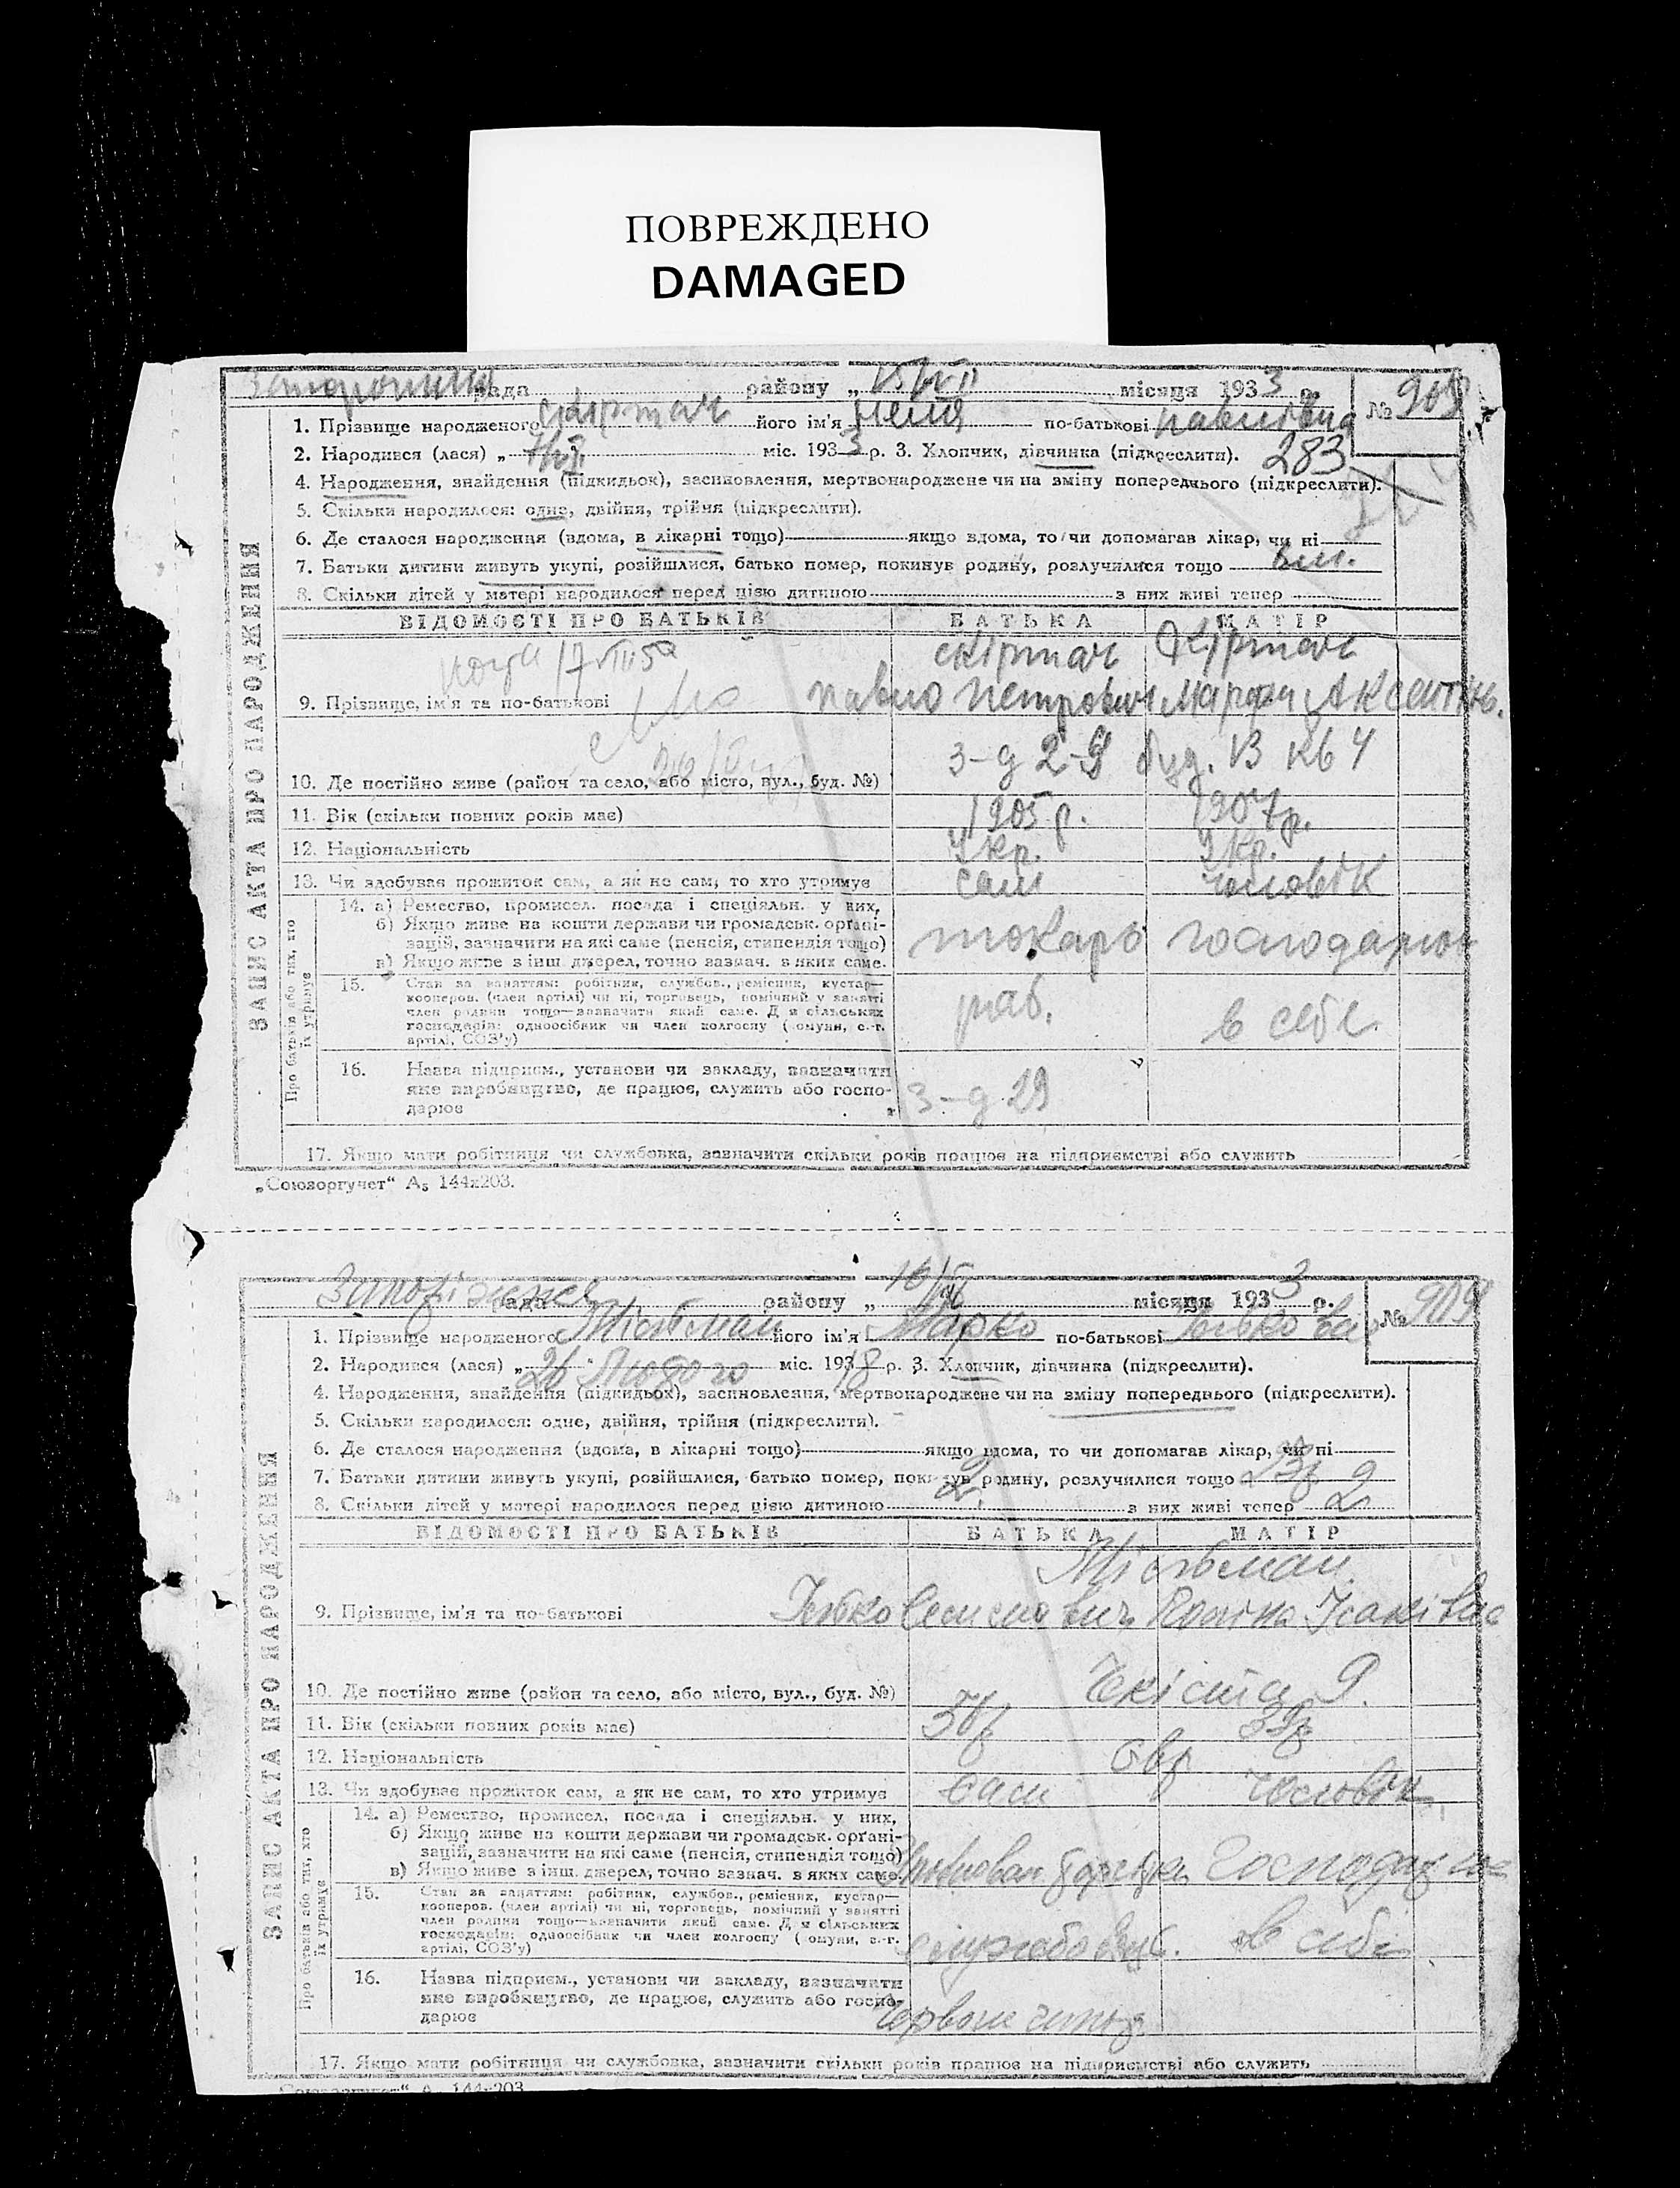 ПОВРЕЖДЕНО
DAMAGED
рада району „ місяця 1933 р.
№ 908
1. Прізвище народженого Скіртач його ім'я Неля по-батькові Павлівна
2. Народився (лася) „ міс. 1933 р. 3. Хлопчик, дівчинка (підкреслити). 283
4. Народження, знайдення (підкидьок), засиновлення, мертвонароджене чи на зміну попереднього (підкреслити).
5. Скільки народилося: одне, двійня, трійня (підкреслити).
6. Де сталося народження (вдома, в лікарні тощо) якщо вдома, то чи допомагав лікар, чи ні
7. Батьки дитини живуть укупі, розійшлися, батько помер, покинув родину, розлучилися тощо
8. Скільки дітей у матері народилося перед цією дитиною з них живі тепер
ВІДОМОСТІ ПРО БАТЬКІВ БАТЬКА МАТІР
Скіртач Скіртач
9. Прізвище, ім'я та по-батькові Павло Петрович Марфа Аксентіїв.
10. Де постійно живе (район та село, або місто, вул., буд. №) буд. 13 кв 4
11. Вік (скільки повних років має) 1905 р. 1907 р.
12. Національність Укр. Укр.
13. Чи здобуває прожиток сам, а як не сам, то хто утримує сам чоловік
14. а) Ремество, промисел, посада і спеціяльн. у них,
б) Якщо живе на кошти держави чи громадськ. орґані-
зацій, зазначити на які саме (пенсія, стипендія тощо)
в) Якщо живе з інш. джерел, точно зазнач. в яких саме.
токарь господарює
15. Стан за заняттям: робітник, службов., ремісник, кустар—
кооперов. (член артілі) чи ні, торговець, помічний у занятті
член родини тощо—зазначити який саме. Для сільських
господарів: одноосібник чи член колгоспу (комуни, с.-г.
артілі, СОЗ'у)
роб. в себе
16. Назва підприєм., установи чи закладу, зазначити
яке виробництво, де працює, служить або госпо-
дарює
з-д 29
17. Якщо мати робітниця чи службовка, зазначити скільки років працює на підприємстві або служить
ЗАПИС АКТА ПРО НАРОДЖЕННЯ
Про батьків або тих, хто їх утримує
„Союзоргучет“ А₅ 144х203.
Запоріжжя рада району „ місяця 1933 р.
№ 909
1. Прізвище народженого Мільман його ім'я Марко по-батькові
2. Народився (лася) „ 26 Лютого міс. 1938 р. 3. Хлопчик, дівчинка (підкреслити).
4. Народження, знайдення (підкидьок), засиновлення, мертвонароджене чи на зміну попереднього (підкреслити).
5. Скільки народилося: одне, двійня, трійня (підкреслити).
6. Де сталося народження (вдома, в лікарні тощо) якщо вдома, то чи допомагав лікар, чи ні
7. Батьки дитини живуть укупі, розійшлися, батько помер, покинув родину, розлучилися тощо
8. Скільки дітей у матері народилося перед цією дитиною 2. з них живі тепер 2
ВІДОМОСТІ ПРО БАТЬКІВ БАТЬКА МАТІР
Мільман
9. Прізвище, ім'я та по-батькові
10. Де постійно живе (район та село, або місто, вул., буд. №) 9.
11. Вік (скільки повних років має)
12. Національність Євр
13. Чи здобуває прожиток сам, а як не сам, то хто утримує сам чоловік
14. а) Ремество, промисел, посада і спеціяльн. у них,
б) Якщо живе на кошти держави чи громадськ. орґані-
зацій, зазначити на які саме (пенсія, стипендія тощо)
в) Якщо живе з інш. джерел, точно зазнач. в яких саме.
Господарює
15. Стан за заняттям: робітник, службов., ремісник, кустар—
кооперов. (член артілі) чи ні, торговець, помічний у занятті
член родини тощо—зазначити який саме. Для сільських
господарів: одноосібник чи член колгоспу (комуни, с.-г.
артілі, СОЗ'у)
службовец. в себе
16. Назва підприєм., установи чи закладу, зазначити
яке виробництво, де працює, служить або госпо-
дарює
17. Якщо мати робітниця чи службовка, зазначити скільки років працює на підприємстві або служить
ЗАПИС АКТА ПРО НАРОДЖЕННЯ
Про батьків або тих, хто їх утримує
„Союзоргучет“ А₅ 144х203